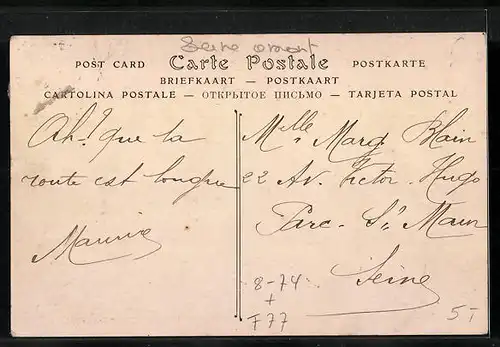 Seine amont
POST CARD Carte Postale POSTKARTE
BRIEFKAART — POSTKAART
CARTOLINA POSTALE — ОТКРЫТОЕ ПИСЬМО — TARJETA POSTAL
Ah! que la
route est longue
Maurice
Mlle Marg. Blain
22 Av. Victor-Hugo
Parc-St Maur
Seine
8-74
+
F77
5T